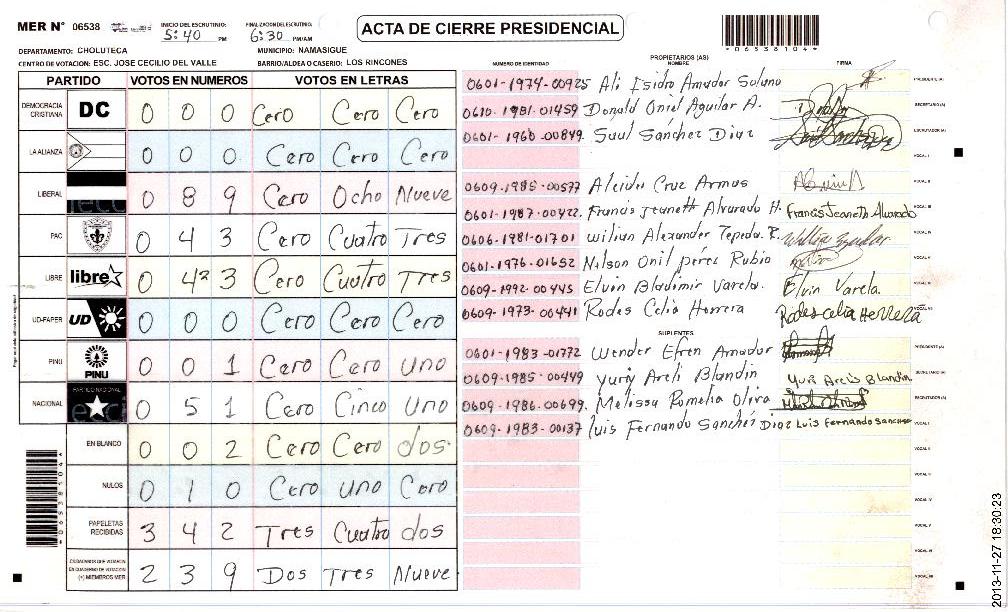 MER Nº 06538
INICIO DEL ESCRUTINIO: 5:40 PM
FINALIZACION DEL ESCRUTINIO: 6:30 PM/AM
ACTA DE CIERRE PRESIDENCIAL
*06538104*
DEPARTAMENTO: CHOLUTECA
MUNICIPIO: NAMASIGUE
CENTRO DE VOTACION: ESC. JOSE CECILIO DEL VALLE
BARRIO/ALDEA O CASERIO: LOS RINCONES
PARTIDO VOTOS EN NUMEROS VOTOS EN LETRAS
DEMOCRACIA CRISTIANA DC 0 0 0 Cero Cero Cero
LA ALIANZA 0 0 0 Cero Cero Cero
LIBERAL 0 8 9 Cero Ocho Nueve
PAC 0 4 3 Cero Cuatro Tres
LIBRE libre 0 4 3 Cero Cuatro Tres
UD-FAPER UD 0 0 0 Cero Cero Cero
PINU PINU 0 0 1 Cero Cero uno
NACIONAL PARTIDO NACIONAL 0 5 1 Cero Cinco uno
EN BLANCO 0 0 2 Cero Cero dos
NULOS 0 1 0 Cero uno Cero
PAPELETAS RECIBIDAS 3 4 2 Tres Cuatro dos
CIUDADANOS QUE VOTARON EN CUADERNO DE VOTACION (+) MIEMBROS MER 2 3 9 Dos Tres Nueve
NUMERO DE IDENTIDAD PROPIETARIOS (AS) NOMBRE FIRMA
0601-1974-00925 Ali Isidro Amador Solano PRESIDENTE(A)
0610-1981-01459 Donald Oniel Aguilar A. SECRETARIO(A)
0601-1960-00849 Saul Sánchez Diaz ESCRUTADOR(A)
VOCAL I
0609-1985-00577 Aleida Cruz Armas VOCAL II
0601-1987-00422 Francis Jeaneth Alvarado H. Francis Jeaneth Alvarado VOCAL III
0606-1981-01701 Wilian Alexander Zepeda. R. VOCAL IV
0601-1976-01652 Nilson Onil pérez Rubio VOCAL V
0609-1992-00445 Elvin Bladimir Varela. Elvin Varela.
0609-1973-00441 Rodes Celia Herrera Rodes Celia Herrera
SUPLENTES
0601-1983-01772 Wender Efren Amador PRESIDENTE(A)
0609-1985-00449 Yuriy Areli Blandin SECRETARIO(A)
0609-1986-00699 Melissa Romelia Oliva ESCRUTADOR(A)
0609-1983-00137 Luis Fernando Sanchés Diaz Luis Fernando Sanchez VOCAL I
VOCAL II
VOCAL III
VOCAL IV
VOCAL V
VOCAL VI
VOCAL VII
*06538104*
2013-11-27 18:30:23